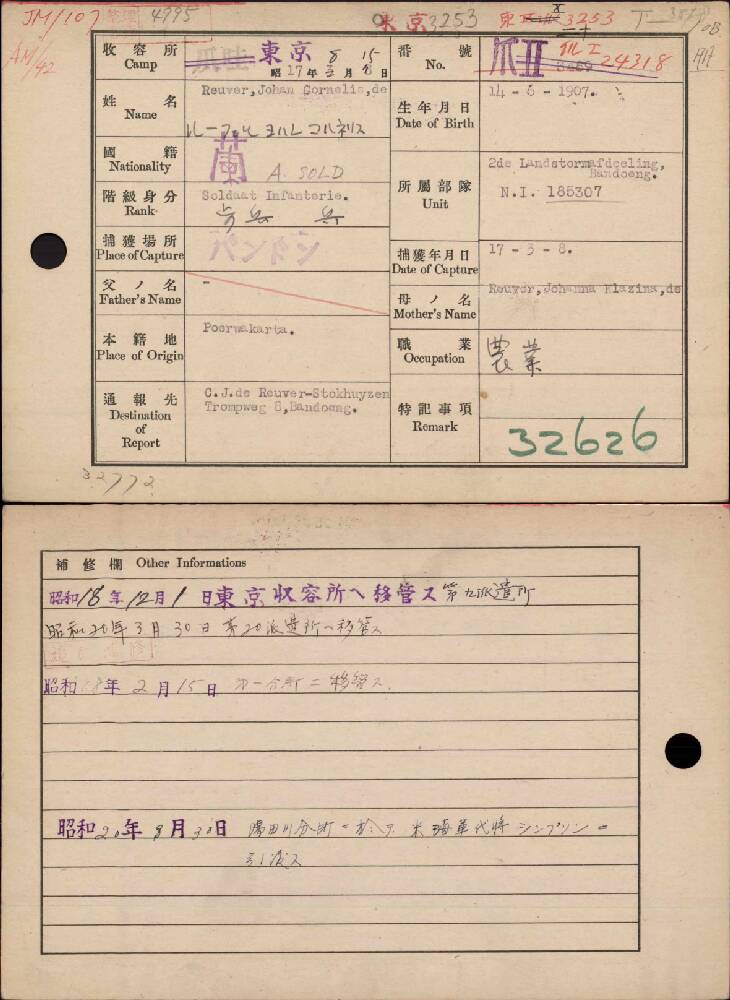 JM/107 4795 東京 3253 3253
AM/42
收容所 Camp 爪哇 東京 8 15
昭17年3月8日
番號 No. 爪II 24318
姓名 Name Reuver, Johan Cornelis, de
生年月日 Date of Birth 14 - 6 - 1907.
國籍 Nationality 蘭 A. SOLD
階級身分 Rank Soldaat Infanterie.
所屬部隊 Unit 2de Landstormafdeeling,
Bandoeng.
N.I. 185307
捕獲場所 Place of Capture バンドン
捕獲年月日 Date of Capture 17 - 3 - 8.
父ノ名 Father's Name -
母ノ名 Mother's Name Reuver, Johanna Klazina, de
本籍地 Place of Origin Poerwakarta.
職業 Occupation 農業
通報先 Destination of Report C.J.de Reuver-Stokhuyzen
Trompweg 8, Bandoeng.
特記事項 Remark 32626
32772
補修欄 Other Informations
昭和18年12月1日東京収容所ヘ移管ス 第九派遣所
昭和20年3月30日 第20派遣所ヘ移管ス
昭和18年2月15日 第一分所ニ移管ス
昭和20年8月30日 ニ於テ 米海軍代将シンプソンニ
引渡ス